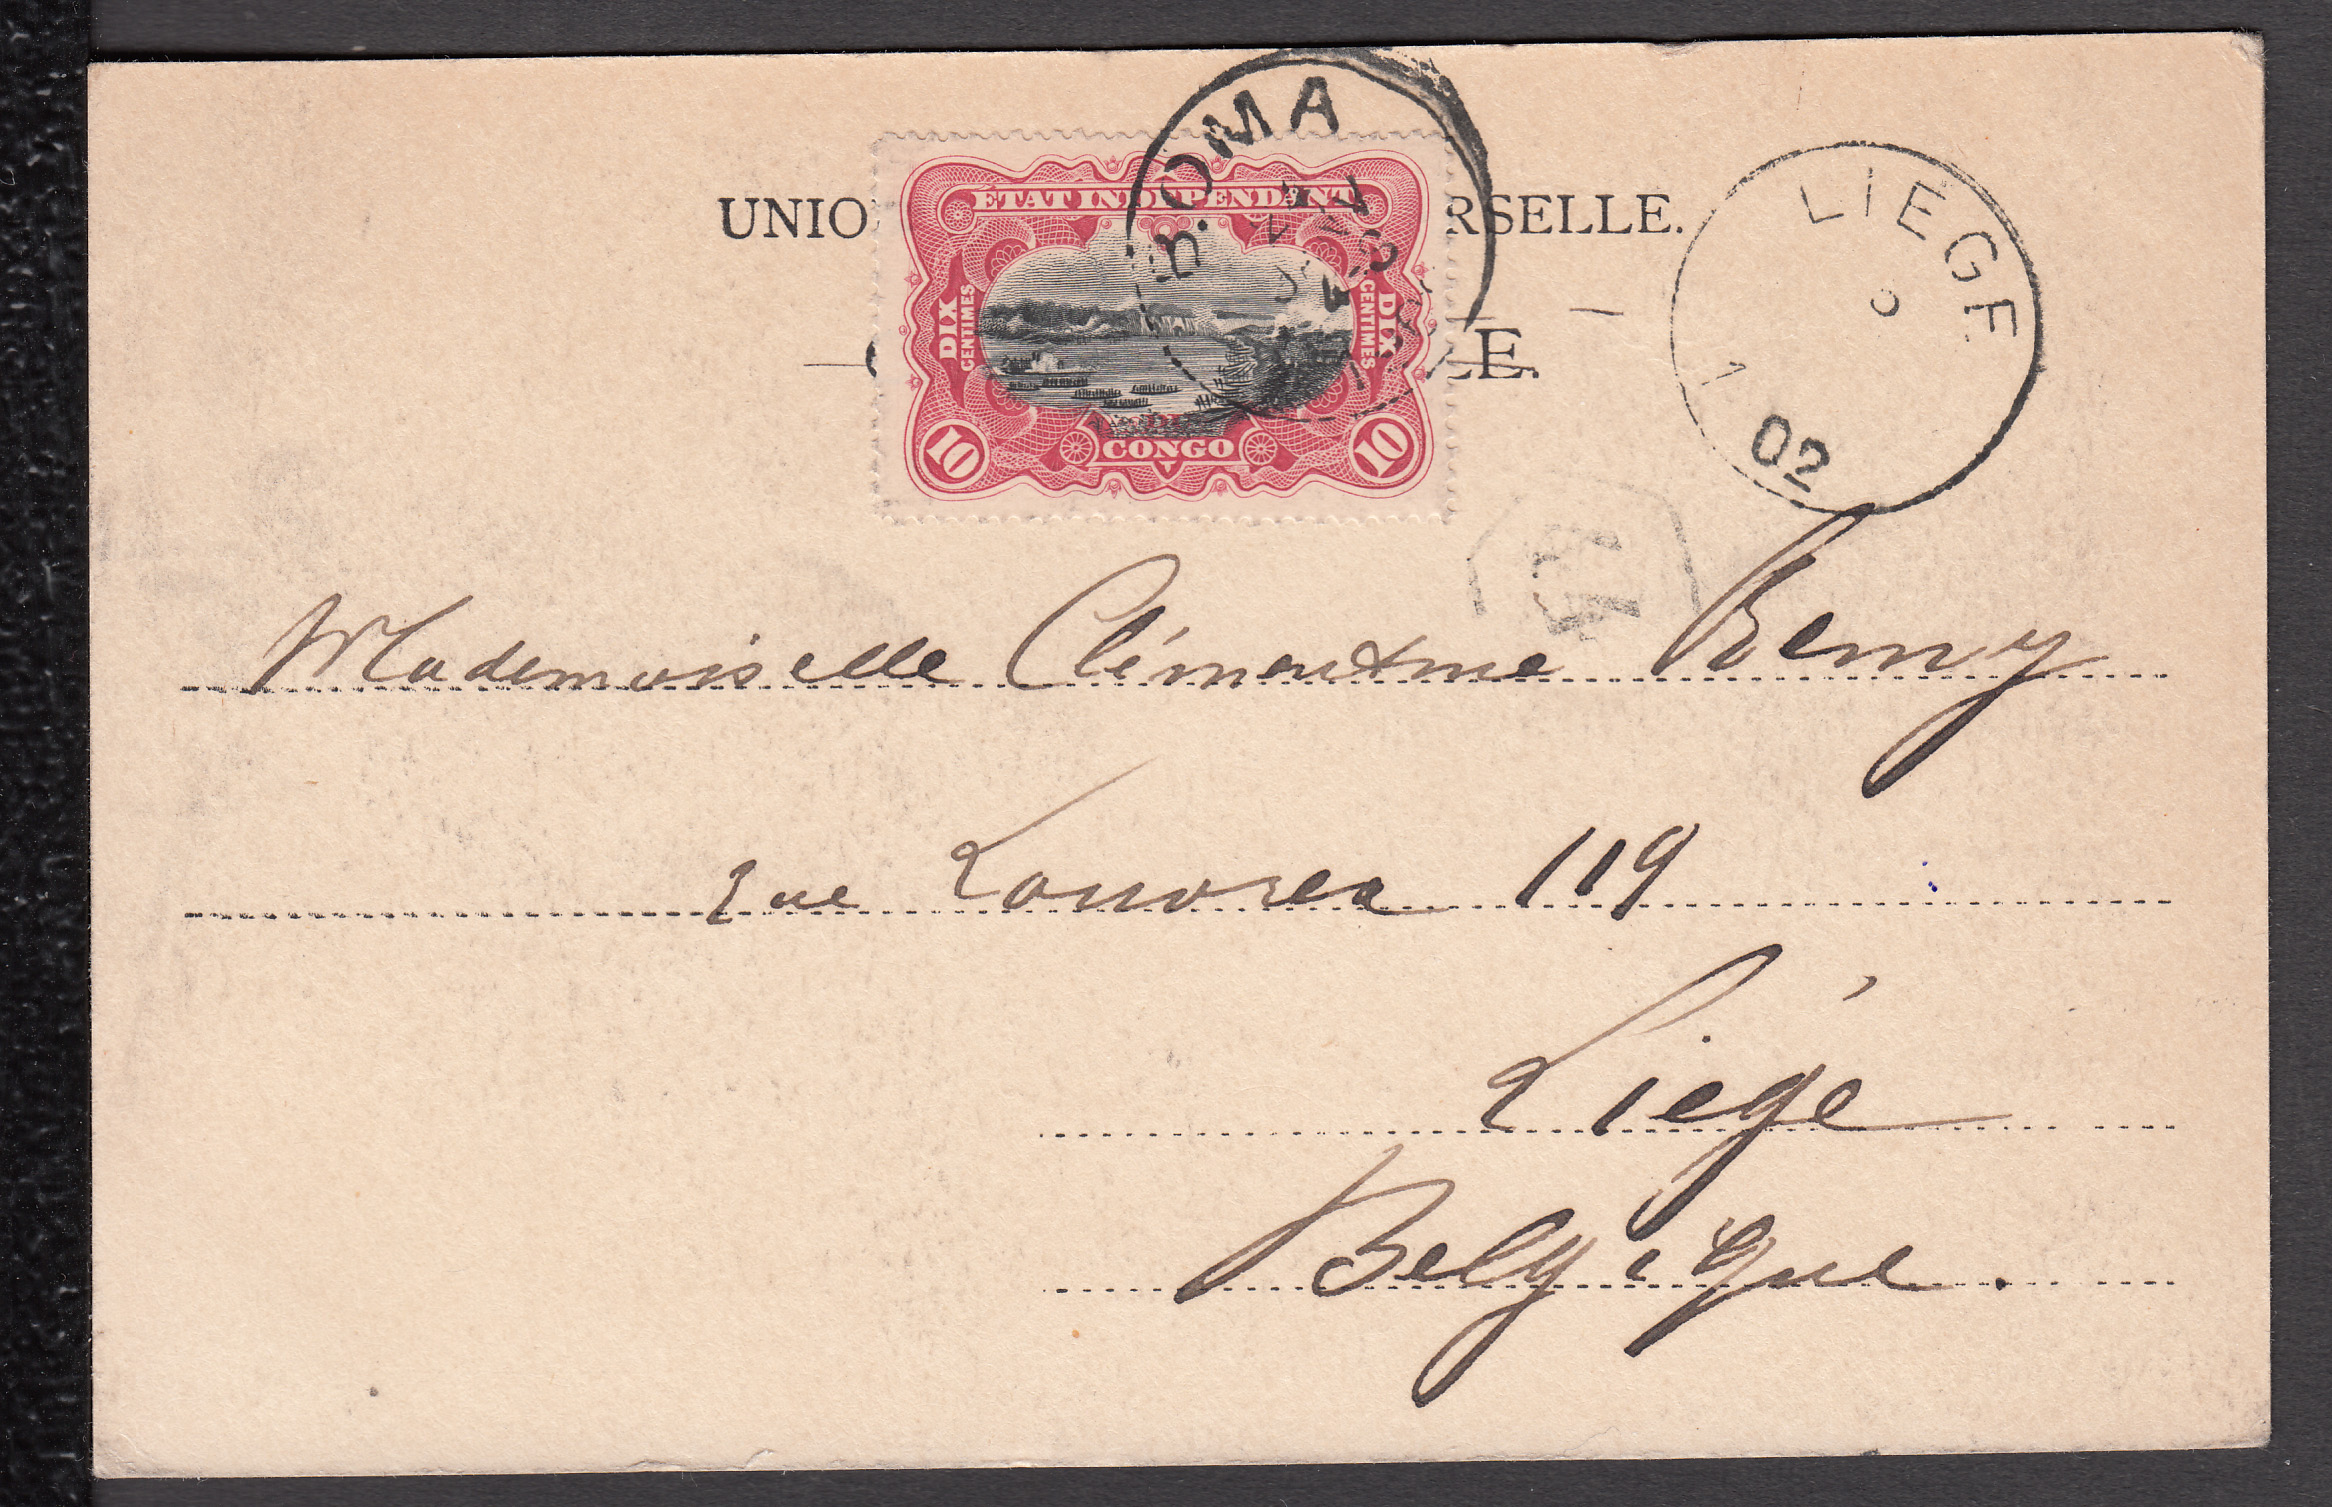 UNIO RSELLE.
LE.
BOMA
ÉTAT INDÉPENDANT
DIX CENTIMES
DIX CENTIMES
10 CONGO 10
LIEGE
02
Mademoiselle Clémentine Remy
rue Louvrex 119
Liége
Belgique.